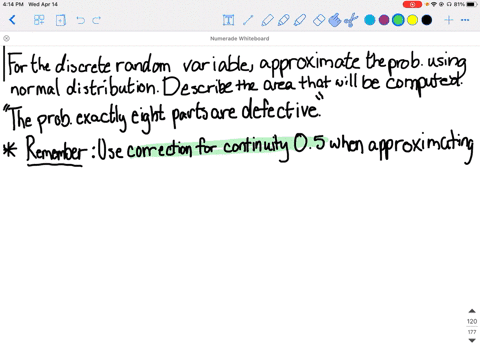 4:14 PM Wed Apr 14
81%
Numerade Whiteboard
For the discrete random variable, approximate the prob. using
normal distribution. Describe the area that will be computed.
"The prob. exactly eight parts are defective."
* Remember: Use correction for continuity 0.5 when approximating
120
177